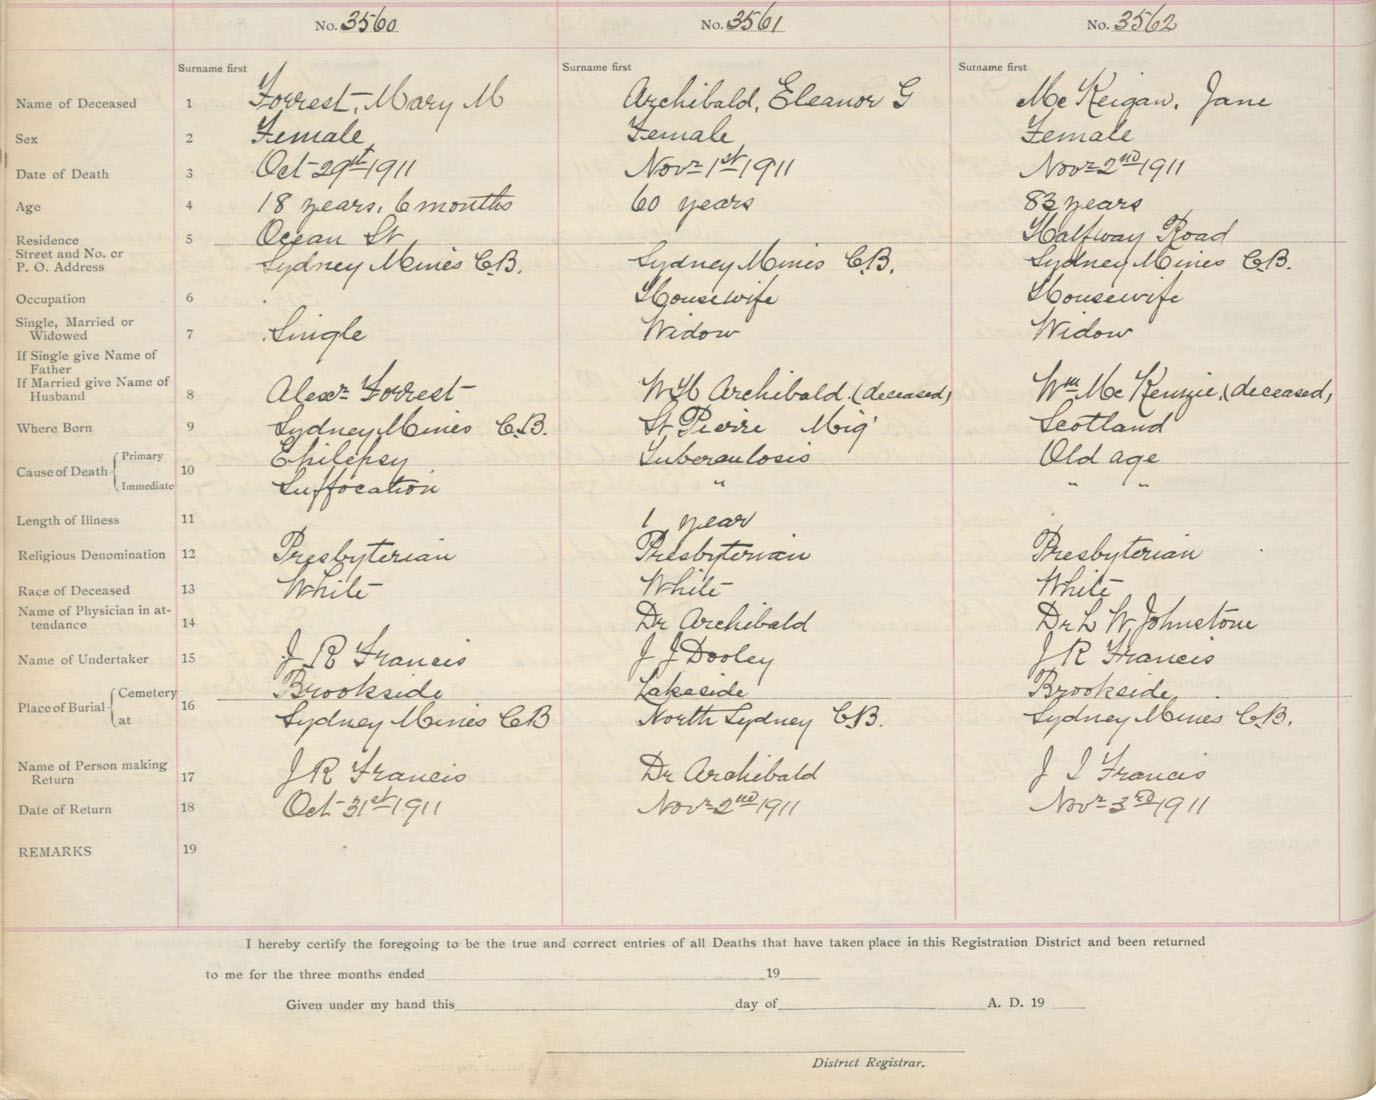 No. 3560 No. 3561 No. 3562
Surname first Surname first Surname first
Name of Deceased 1 Forrest, Mary M Archibald, Eleanor G McKeigan, Jane
Sex 2 Female Female Female
Date of Death 3 Oct 29st 1911 Novr 1st 1911 Novr 2nd 1911
Age 4 18 years, 6 months 60 years 83 years
Residence 5 Ocean St Halfway Road
Street and No. or
P. O. Address Sydney Mines C.B. Sydney Mines C.B. Sydney Mines C.B.
Occupation 6 Housewife Housewife
Single, Married or
Widowed 7 Single Widow Widow
If Single give Name of
Father
If Married give Name of
Husband 8 Alexr Forrest W H Archibald (deceased) Wm McKenzie, (deceased)
Where Born 9 Sydney Mines C.B. St Pierre Miq' Scotland
Cause of Death Primary 10 Epilepsy Tuberculosis Old age
Immediate Suffocation " " "
Length of Illness 11 1 year
Religious Denomination 12 Presbyterian Presbyterian Presbyterian
Race of Deceased 13 White White White
Name of Physician in at-
tendance 14 Dr Archibald Dr L W Johnstone
Name of Undertaker 15 J R Francis J J Dooley J R Francis
Place of Burial Cemetery 16 Brookside Lakeside Brookside
at Sydney Mines C B North Sydney C.B. Sydney Mines C.B.
Name of Person making
Return 17 J R Francis Dr Archibald J I Francis
Date of Return 18 Oct 31st 1911 Novr 2nd 1911 Novr 3rd 1911
REMARKS 19
I hereby certify the foregoing to be the true and correct entries of all Deaths that have taken place in this Registration District and been returned
to me for the three months ended 19
Given under my hand this day of A. D. 19
District Registrar.